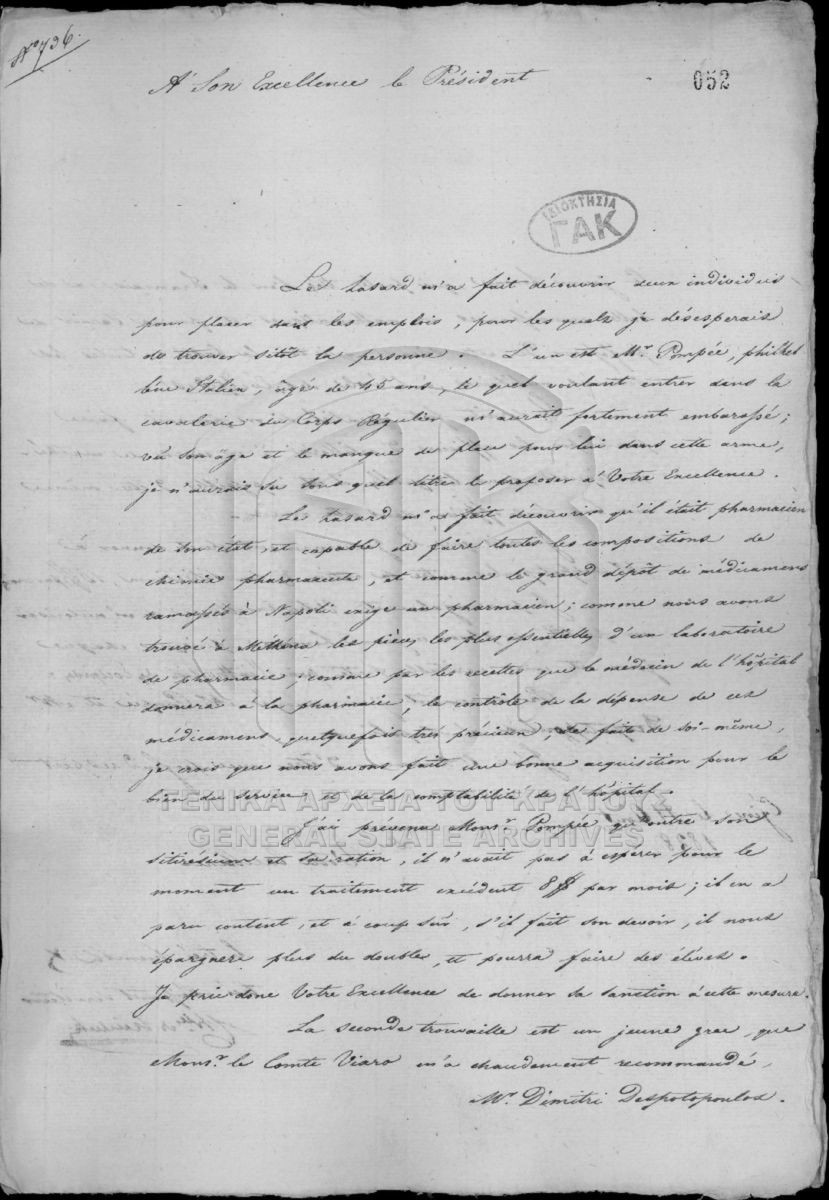 No 796.
A' Son Excellence le Président
052
ΙΔΙΟΚΤΗΣΙΑ
ΓΑΚ
Le hasard m'a fait découvrir deux individus
pour placer dans les emplois, pour les quels je désesperais
de trouver sitôt la personne. L'un est Mr. Pompée, philhel
lène Italien, âgé de 45 ans, le quel voulant entrer dans la
cavalerie du Corps Régulier m'aurait fortement embarassé;
vû son âge et le manque de place pour lui dans cette arme,
je n'aurais su sous quel titre le proposer à Votre Excellence.
Le hasard m'a fait découvrir qu'il était pharmacien
de son état, et capable de faire toutes les compositions de
chimie pharmaceute, et comme le grand dépôt de médicamens
ramassés à Napoli exige un pharmacien; comme nous avons
trouvé à Méthéna les pièces les plus essentielles d'un laboratoire
de pharmacie; comme par les recettes que le médecin de l'hôpital
donnera à la pharmacie, le contrôle de la dépense de ces
médicamens, quelquefois très précieux, se faite de soi-même,
je crois que nous avons fait une bonne acquisition pour le
bien du service et de la comptabilité de l'hôpital.
ΓΕΝΙΚΑ ΑΡΧΕΙΑ ΤΟΥ ΚΡΑΤΟΥΣ
GENERAL STATE ARCHIVES
J'ai prévenu Monsr. Pompée qu'outre son
sitirésium et sa ration, il n'avait pas à espérer pour le
moment un traitement excédent 8 par mois; il en a
paru content, et à coup sûr, s'il fait son devoir, il nous
épargnera plus du double, et pourra faire des élèves.
Je prie donc Votre Excellence de donner sa sanction à cette mesure.
La seconde trouvaille est un jeune grec, que
Monsr. le Comte Viaro m'a chaudement recommandé,
Mr. Dimitri Despotopoulos.